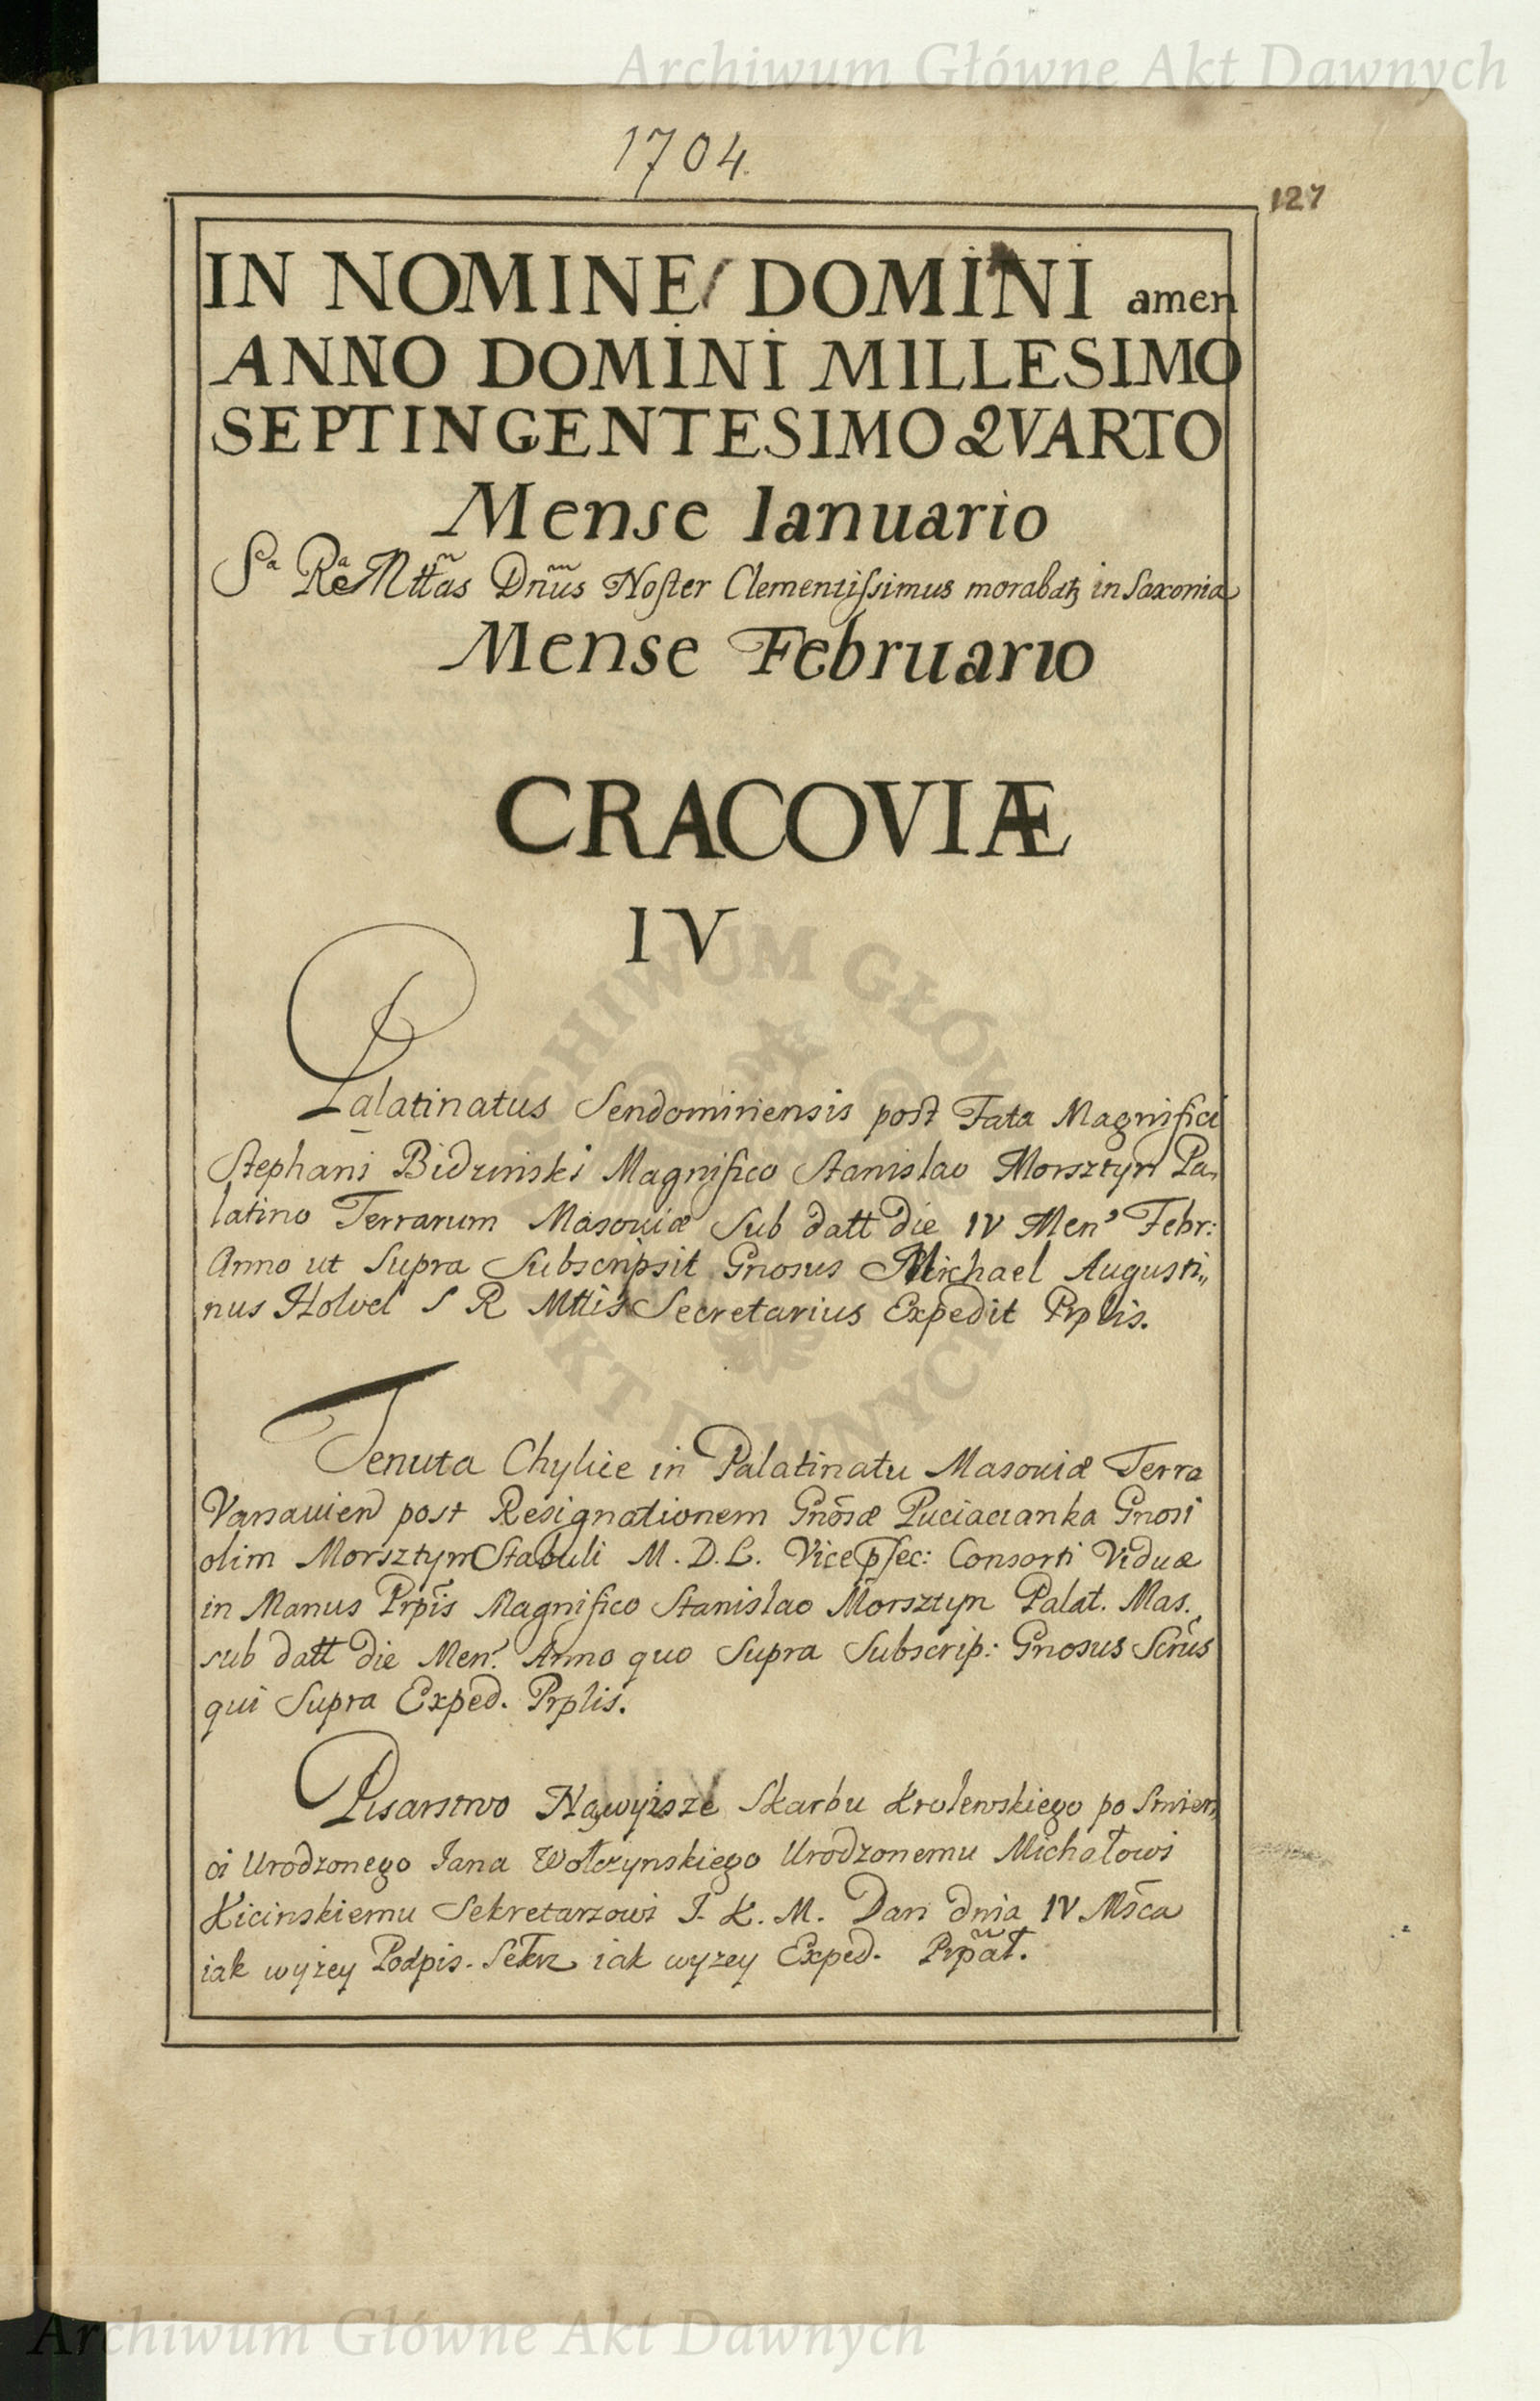 Archiwum Główne Akt Dawnych
1704.
127
IN NOMINE DOMINI amen
ANNO DOMINI MILLESIMO
SEPTINGENTESIMO QVARTO
Mense Ianuario
Sa Rea Mttas Dnus Noster Clementissimus morabatz in Saxonia
Mense Februario
CRACOVIÆ
IV
Palatinatus Sendomiriensis post Fata Magnifici
Stephani Bidzinski Magnifico Stanislao Morsztyn Pa,
latino Terrarum Masouiæ Sub datt die IV Men' Febr:
Anno ut Supra Subscripsit Gnosus Michael Augusti„
nus Holvel S R Mttis Secretarius Expedit Prplis.
Tenuta Chylice in Palatinatu Masouiæ Terra
Varsauien post Resignationem Gnosæ Puciacianka Gnosi
olim Morsztyn Stabuli M. D. L. Vicepfec: Consorti Viduæ
in Manus Prpis Magnifico Stanislao Morsztyn Palat. Mas.
sub datt die Men? Anno quo Supra Subscrip: Gnosus Scrius
qui Supra Exped. Prplis.
Pisarstwo Naywyisze Skarbu Krolewskiego po Smier,
ci Urodzonego Iana Wolczynskiego Urodzonemu Michałowi
Kicinskiemu Sekretarzowi J. K. M. Dan dnia IV Msca
iak wyzey Podpis. Sekrz iak wyzey Exped. Prpał.
ARCHIWUM GŁÓWNE AKT DAWNYCH
Archiwum Główne Akt Dawnych